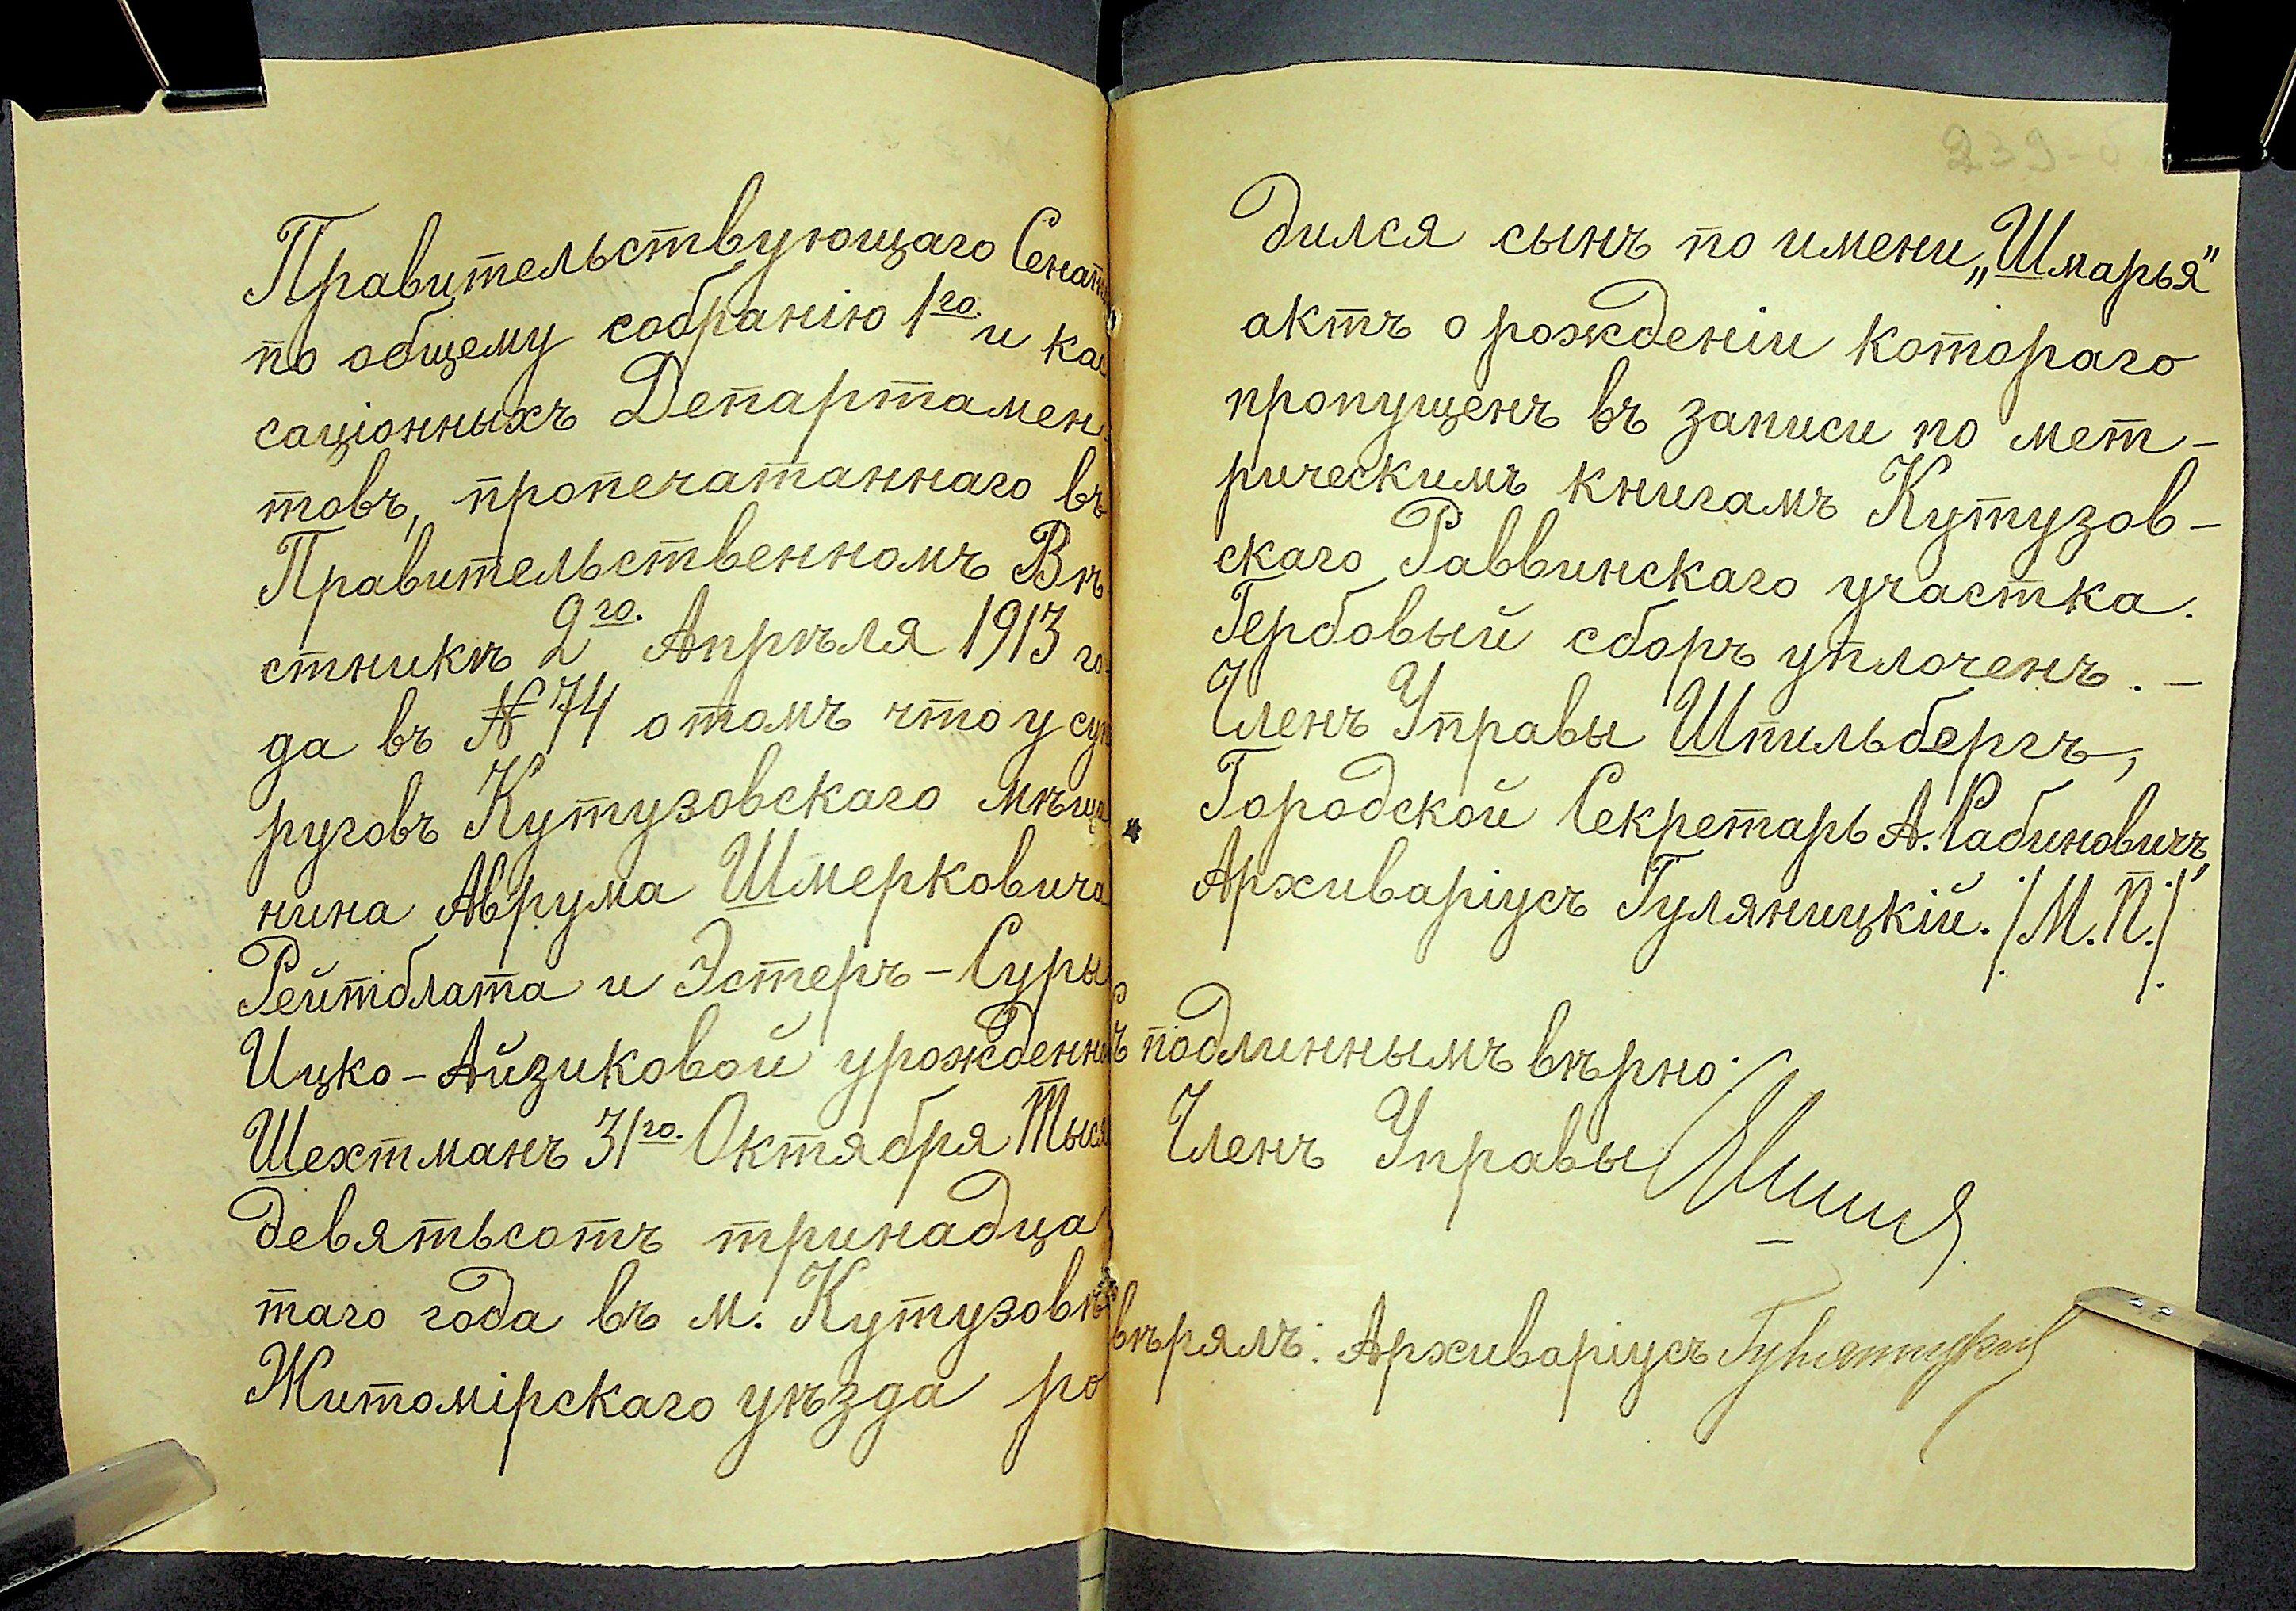 Правительствующаго Сенат
по общему собранію 1го. и ка
саціонныхъ Департамен
товъ, пропечатаннаго въ
Правительственномъ Вѣ
стникѣ 2го. Апрѣля 1913 го
да въ № 74 о томъ что у суп
руговъ Кутузовскаго мѣща
нина Аврума Шмерковича
Рейтблата и Эстеръ-Суры
Ицко-Айзиковой урожденн
Шехтманъ 31го. Октября Тыся
девятьсотъ тринадца
таго года въ м. Кутузовѣ
Житомірскаго уѣзда ро
239-б
дился сынъ по имени „Шмарья"
актъ о рожденіи котораго
пропущенъ въ записи по мет-
рическимъ книгамъ Кутузов-
скаго Раввинскаго участка.
Гербовый сборъ уплоченъ. –
Членъ Управы Шпильбергъ,
Городской Секретарь А. Рабиновичъ,
Архиваріусъ Гуляницкій. /М.П./
Съ подлиннымъ вѣрно:
Членъ Управы
вѣрялъ: Архиваріусъ Гуляницкій